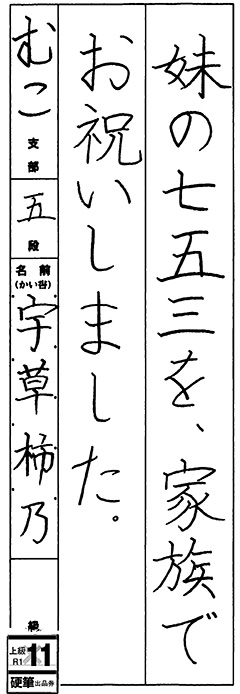 妹の七五三を、家族で
お祝いしました。
むこ支部
五段
名前
(かい号)
宇草柿乃
級
上級
R1
11
硬筆出品券